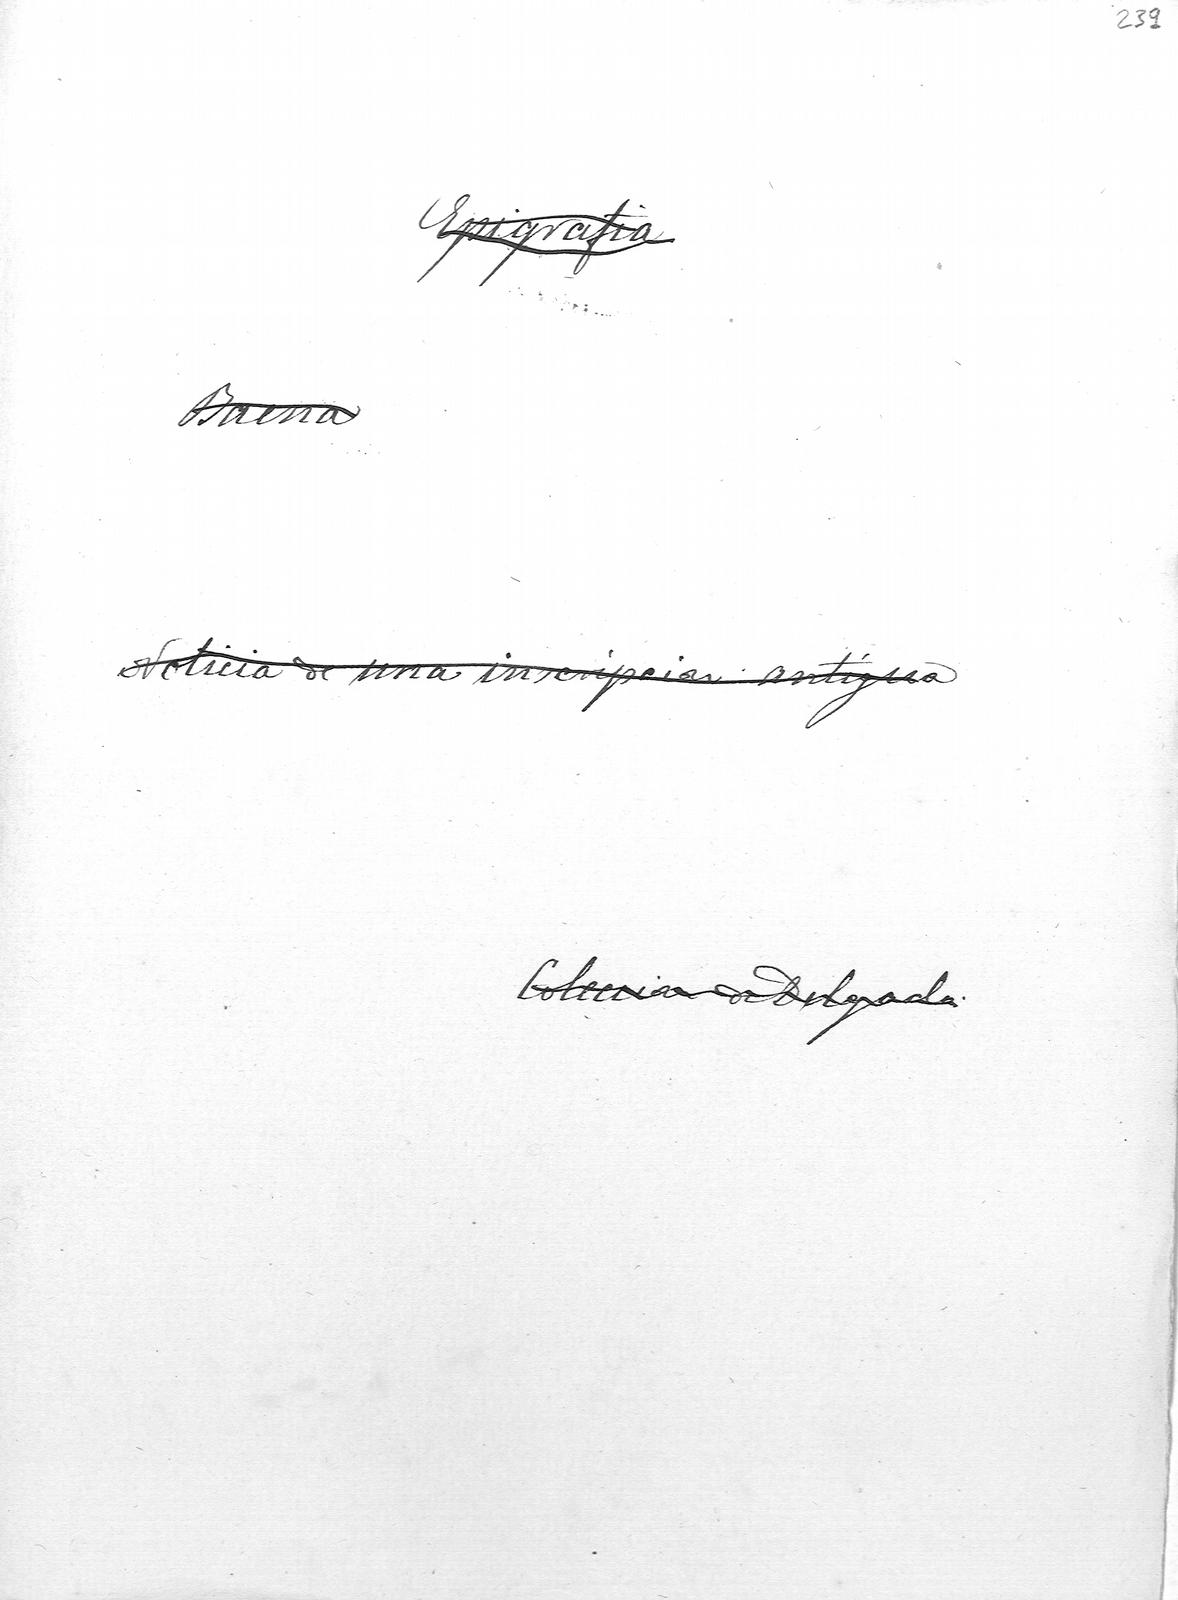 239
Epigrafia
Baena
Noticia de una inscripcion antigua
Coleccion de Delgado.